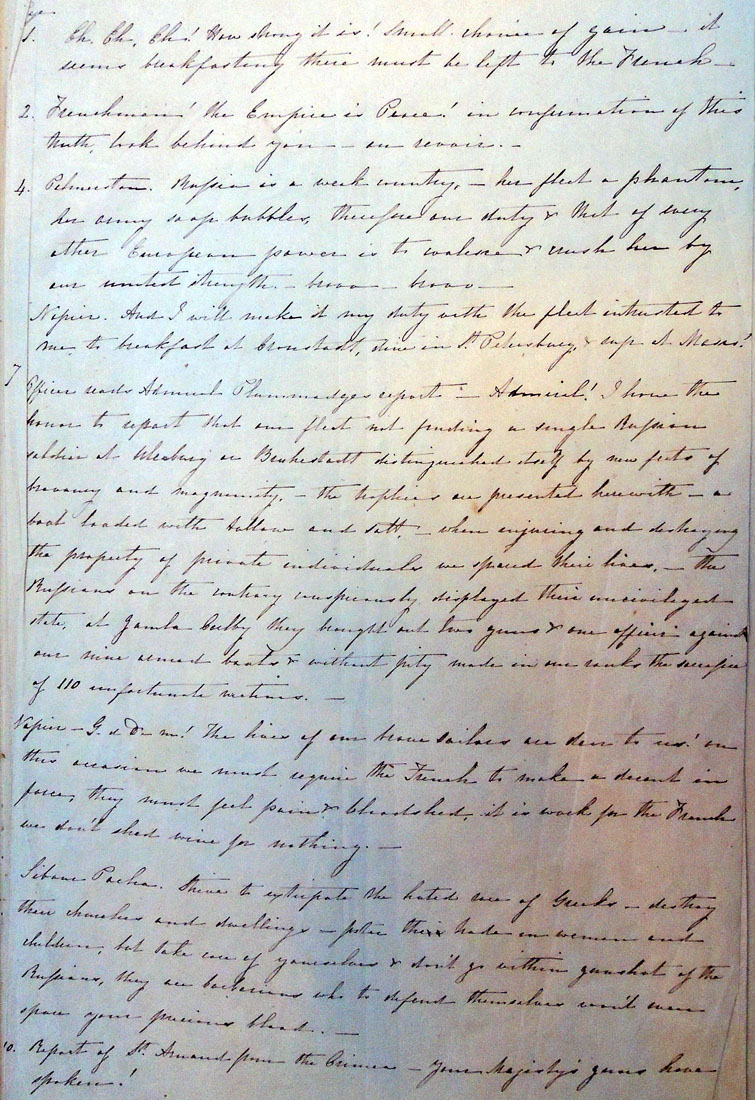 1. Eh, Eh, Eh! How strong it is! Small choice of gain – it
seems breakfasting there must be left to the French –
2. Frenchmain! the Empire is Peace! in confirmation of this
truth, look behind you – au revoir. –
4. Palmerston. Russia is a weak country, – her fleet a phantom,
her army soap bubbles, therefore our duty & that of every
other European power is to coalesce & crush her by
our united strength. – bravo – bravo –
Napier. And I will make it my duty with the fleet intrusted to
me, to breakfast at Cronstadt, dine in St Petersburg, & sup at Moscow!
7 Officer reads Admiral Plummadges report – Admiral! I have the
honor to report that our fleet not finding a single Russian
soldier at Uleaborg or Brahestadt distinguished itself by new feats of
bravery and magnimity, – the trophies are presented herewith – a
boat loaded with tallow and salt, – when injuring and destroying
the property of private individuals we spared their lives, – the
Russians on the contrary conspicuously displayed their uncivilized
state, at Gamla Carlby they brought out two guns & one officer against
our nine armed boats & without pity made in our ranks the sacrifice
of 110 unfortunate victims. –
Napier – G. d D–m! The lives of our brave sailors are dear to us! on
this occasion we must require the French to make a decent in
force, they must feel pain & bloodshed, it is work for the French
we don't shed wine for nothing. –
Pacha. Strive to extirpate the hated race of Greeks – destroy
their churches and dwellings – trade in women and
children, but take care of yourselves & don't go within gunshot of the
Russians, they are barbarians who to defend themselves won't even
spare your precious blood. –
10. Report of St Arnaud from the Crimea – Your Majesty's guns have
spoken!